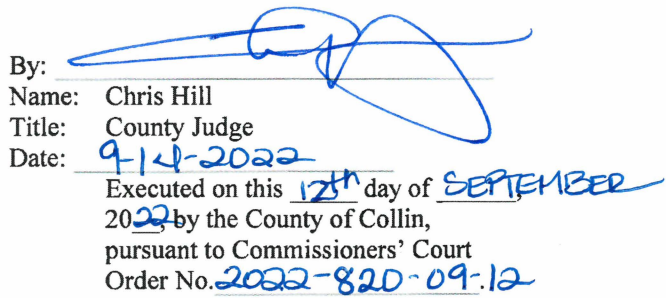 By:
Name: Chris Hill
Title: County Judge
Date: 9-14-2022
Executed on this 12th day of SEPTEMBER,
2022, by the County of Collin,
pursuant to Commissioners' Court
Order No. 2022-820-09-12